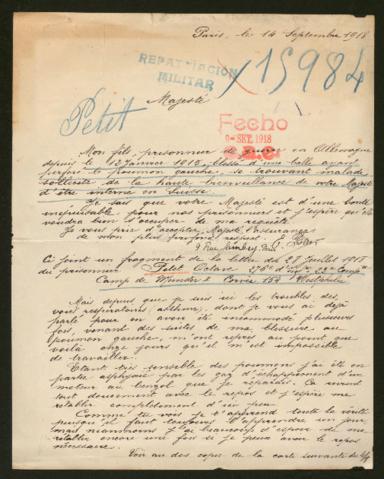 Paris, le 14 Septembre 1918
REPATRIACION
MILITAR
15984
Petit
Majesté
Fecho
SET. 1918
Mon fils, prisonnier de guerre en Allemagne
depuis le 12 Janvier 1916, blessé d'une balle ayant
perforé le poumon gauche, se trouvant malade
sollicite de la haute bienveillance de votre Majesté
d'être interné en Suisse.
Je sais que votre Majesté est d'une bonté
inépuisable pour nos prisonniers et j'espère qu'elle
voudra bien s'occuper de ma requête.
Je vous prie d'accepter, Majesté, l'assurance
de mon plus profond respect.
Rue Paris
Ci joint un fragment de la lettre du 28 Juillet 1918
du prisonnier Petit Octave 276e d'Inf 22e Compie
Camp de Munster 2 Corvée 154 Westphalie
Mais depuis que je suis ici les troubles des
voies respiratoires, dont je vous ai déjà
parlé pour en avoir été incommodé plusieurs
fois, venant des suites de ma blessure au
poumon gauche, m'ont repris au point que
voilà onze jours qu'il m'est impossible
de travailler.
Etant très sensible des poumons j'ai été en
partie asphyxié par les gaz d'échappement d'un
moteur au benzol que je réparais. Ça revient
tout doucement avec le repos et j'espère me
rétablir complètement d'ici peu.
Comme tu vois je t'apprend toute la vérité
puisqu'il faut toujours l'apprendre un jour,
mais néanmoins j'ai beaucoup d'espoir de me
rétablir encore une fois si je peux avoir le repos
nécessaire.
Voir au dos copie de la carte suivante du